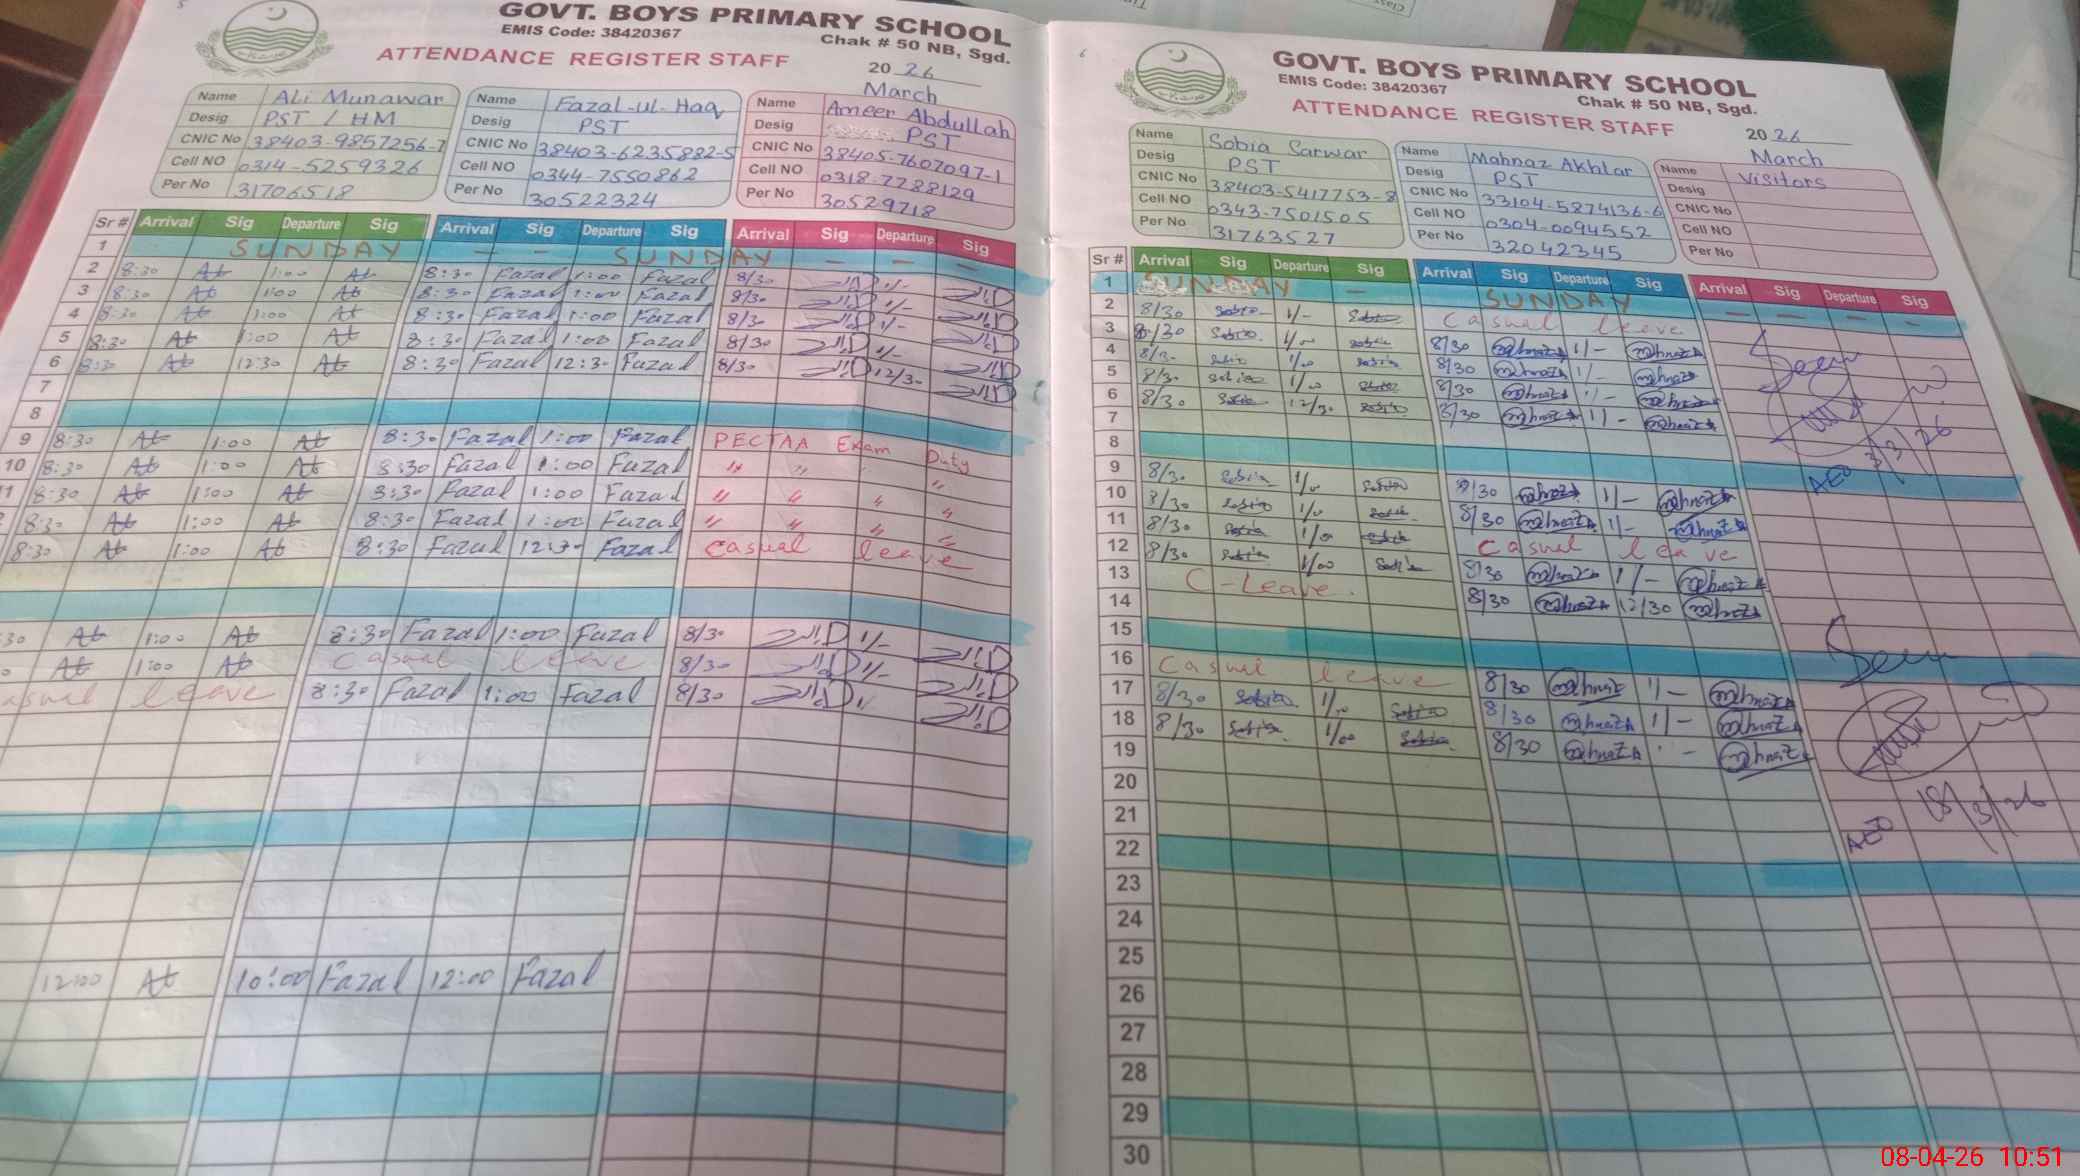 5
GOVT. BOYS PRIMARY SCHOOL
EMIS Code: 38420367
Chak # 50 NB, Sgd.
ATTENDANCE REGISTER STAFF
20 26
March
Name Ali Munawar
Desig PST / HM
CNIC No 38403-9857256-7
Cell NO 0314-5259326
Per No 31706518
Name Fazal-ul-Haq
Desig PST
CNIC No 38403-6235882-5
Cell NO 0344-7550862
Per No 30522324
Name Ameer Abdullah
Desig PST
CNIC No 38405-7607097-1
Cell NO 0318-7788129
Per No 30529718
Sr # Arrival Sig Departure Sig Arrival Sig Departure Sig Arrival Sig Departure Sig
1 SUNDAY — — SUNDAY — — —
2 8:30 At 1:00 At 8:30 Fazal 1:00 Fazal 8/30 1/-
3 8:30 At 1:00 At 8:30 Fazal 1:00 Fazal 8/30 1/-
4 8:30 At 1:00 At 8:30 Fazal 1:00 Fazal 8/30 1/-
5 8:30 At 1:00 At 8:30 Fazal 1:00 Fazal 8/30 1/-
6 8:30 At 12:30 At 8:30 Fazal 12:30 Fazal 8/30 12/30
7
8
9 8:30 At 1:00 At 8:30 Fazal 1:00 Fazal PECTAA Exam Duty
10 8:30 At 1:00 At 8:30 Fazal 1:00 Fazal " " "
11 8:30 At 1:00 At 8:30 Fazal 1:00 Fazal " " " "
8:30 At 1:00 At 8:30 Fazal 1:00 Fazal " " " "
8:30 At 1:00 At 8:30 Fazal 12:30 Fazal Casual leave
30 At 1:00 At 8:30 Fazal 1:00 Fazal 8/30 1/-
At 1:00 At Casual leave 8/30 1/-
asual leave 8:30 Fazal 1:00 Fazal 8/30
12:00 At 10:00 Fazal 12:00 Fazal
6
GOVT. BOYS PRIMARY SCHOOL
EMIS Code: 38420367
Chak # 50 NB, Sgd.
ATTENDANCE REGISTER STAFF
20 26
March
Name Sobia Sarwar
Desig PST
CNIC No 38403-5417753-8
Cell NO 0343-7501505
Per No 31763527
Name Mahnaz Akhtar
Desig PST
CNIC No 33104-5874136-6
Cell NO 0304-0094552
Per No 32042345
Name Visitors
Desig
CNIC No
Cell NO
Per No
Sr # Arrival Sig Departure Sig Arrival Sig Departure Sig Arrival Sig Departure Sig
1 SUNDAY — SUNDAY — — — —
2 8/30 Sobia 1/- Sobia Casual leave
3 8/30 Sobia 1/00 Sobia 8/30 Mahnaz 1/- Mahnaz
4 8/30 Sobia 1/00 Sobia 8/30 Mahnaz 1/- Mahnaz
5 8/30 Sobia 1/00 Sobia 8/30 Mahnaz 1/- Mahnaz
6 8/30 Sobia 12/30 Sobia 8/30 Mahnaz 1/- Mahnaz
7
AEO 3/3/26
8
9 8/30 Sobia 1/00 Sobia 8/30 Mahnaz 1/- Mahnaz
10 8/30 Sobia 1/00 Sobia 8/30 Mahnaz 1/- Mahnaz
11 8/30 Sobia 1/00 Sobia Casual leave
12 8/30 Sobia 1/00 Sobia 8/30 Mahnaz 1/- Mahnaz
13 C-Leave. 8/30 Mahnaz 12/30 Mahnaz
14
15
16 Casual leave 8/30 Mahnaz 1/- Mahnaz
17 8/30 Sobia 1/00 Sobia 8/30 Mahnaz 1/- Mahnaz
18 8/30 Sobia 1/00 Sobia 8/30 Mahnaz Mahnaz
19
20
21
AEO 18/3/26
22
23
24
25
26
27
28
29
30
08-04-26 10:51